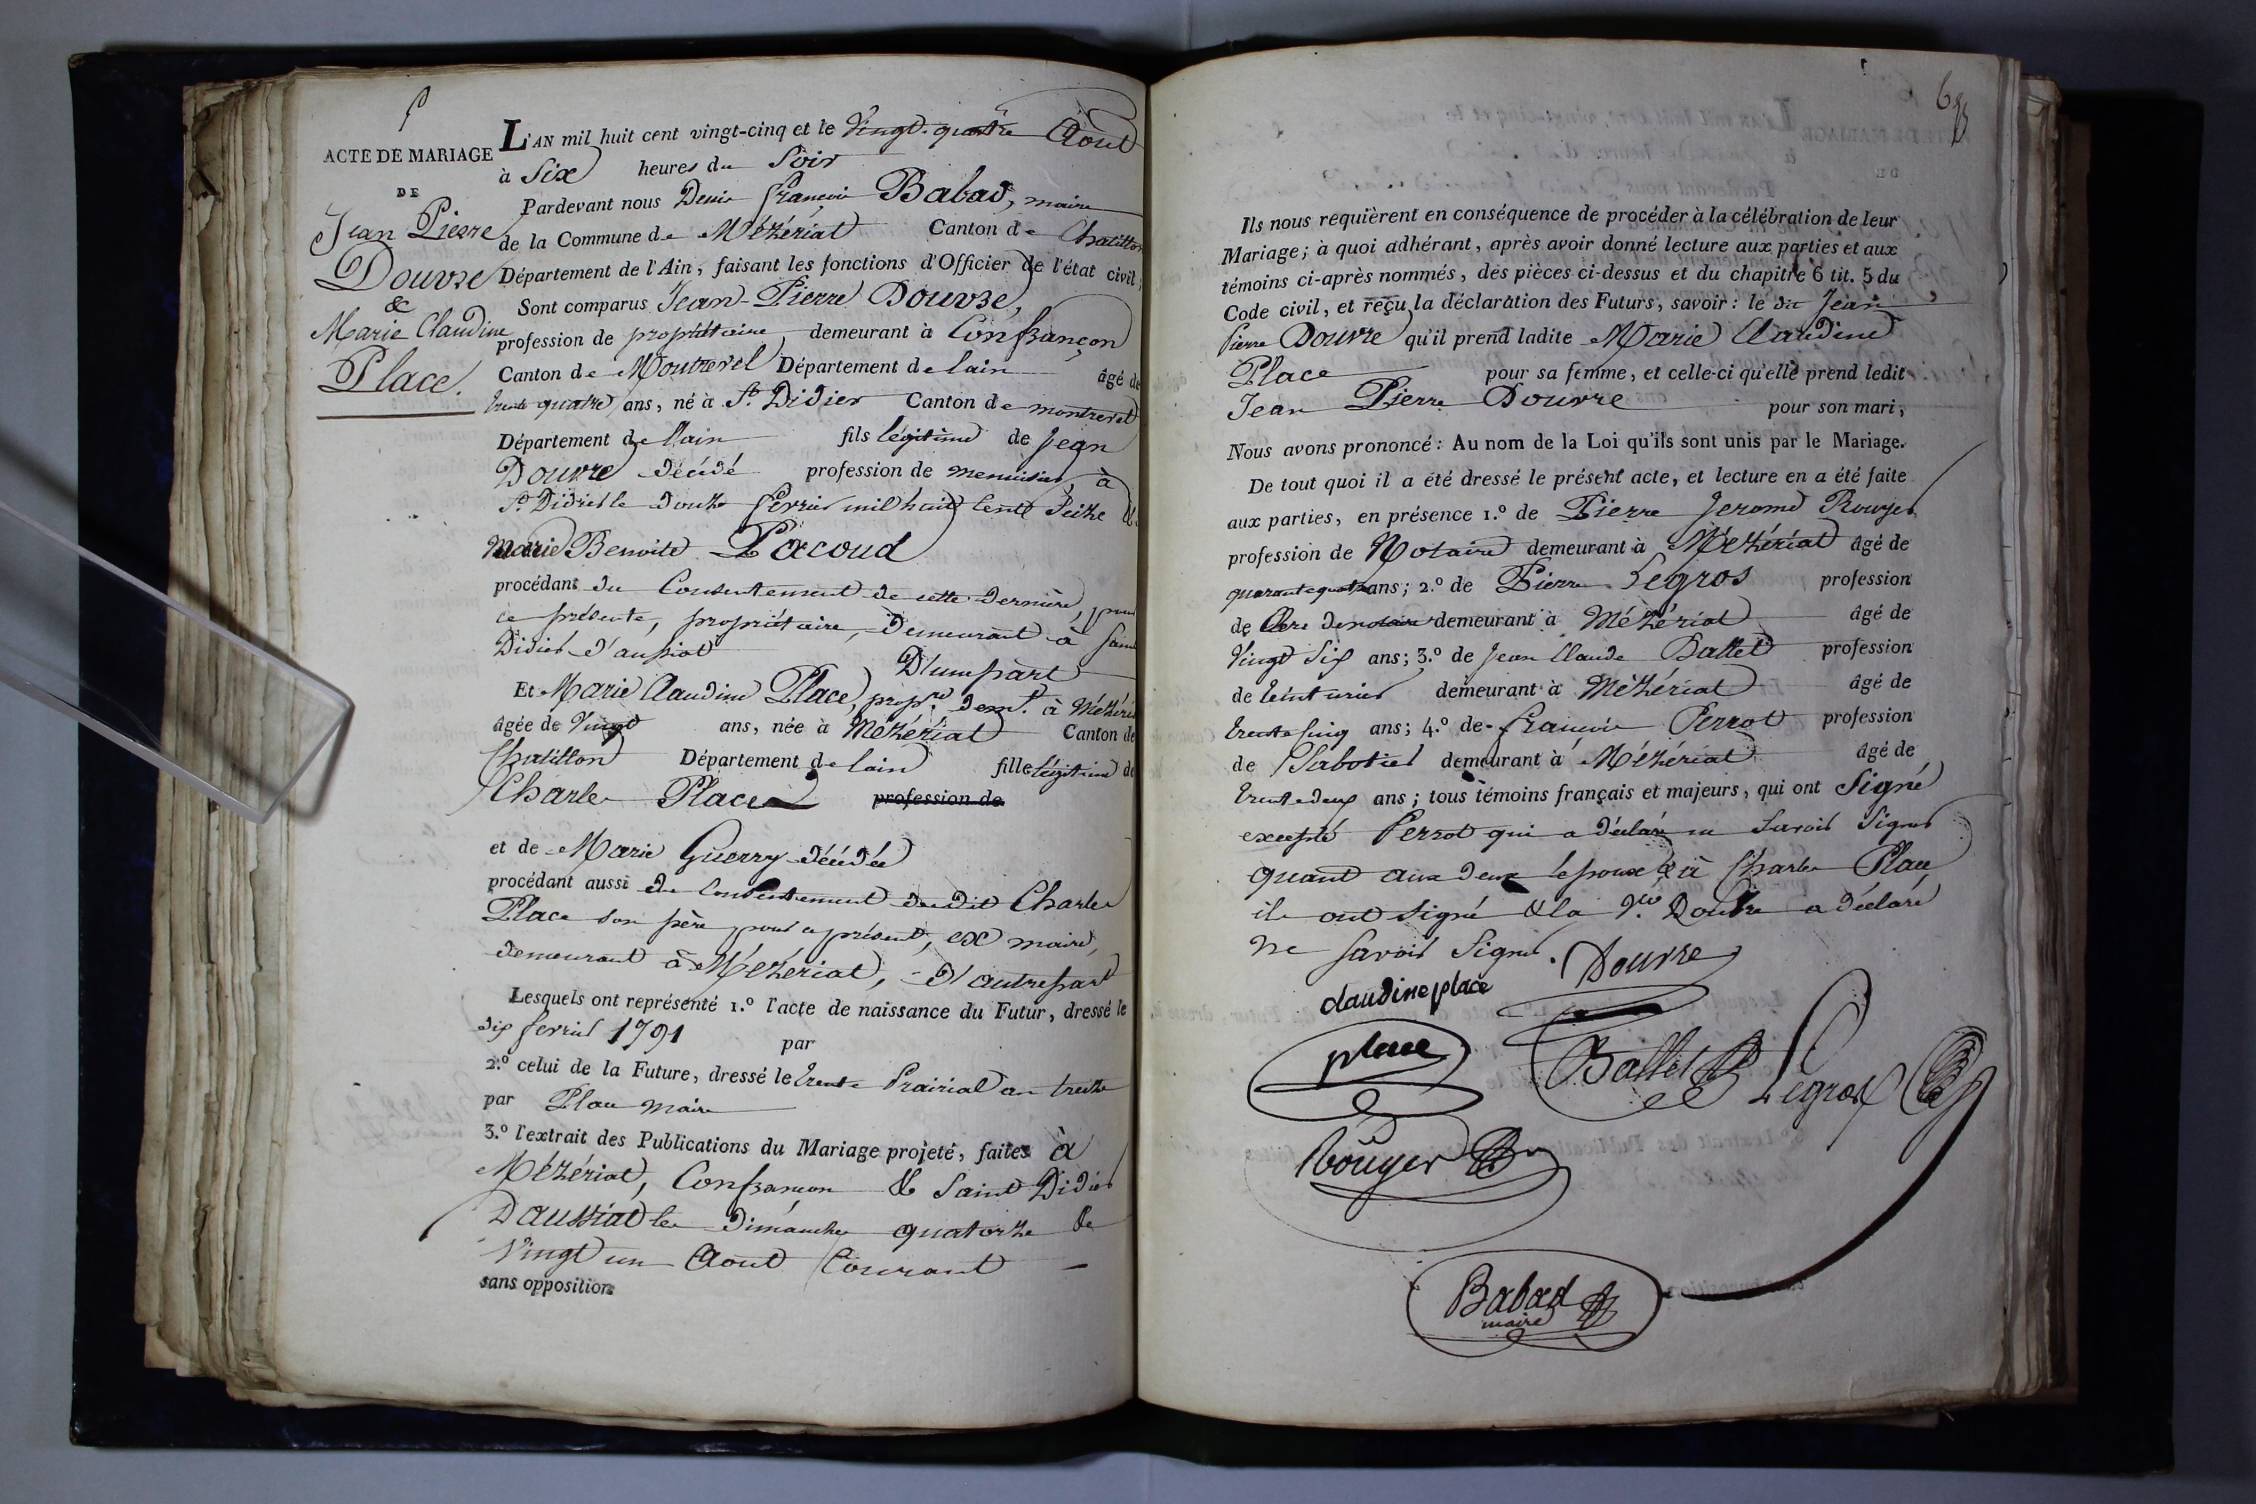 ACTE DE MARIAGE
DE
Jean Pierre
Douvre
&
Marie Claudine
Place.
L'AN mil huit cent vingt-cinq et le Vingt-quatre Aout
à Six heures du Soir
Pardevant nous Denis françois Babad, maire
de la Commune de Mézériat Canton de Chatillon
Département de l'Ain, faisant les fonctions d'Officier de l'état civil;
Sont comparus Jean-Pierre Douvre,
profession de propriétaire demeurant à Confrançon
Canton de Montrevel Département de lain âgé de
trente quatre ans, né à St. Didier Canton de montrevel
Département de lain fils légitime de Jean
Douvre décédé profession de menuisier, à
St. Didier le douze fevrier mil huit cent Seize &
Marie Benoite Pacoud
procédant du Consentement de cette dernière, pour
ce présente, propriétaire, demeurant à Saint
Didier d'aussiat D'une part
Et Marie Claudine Place, propre. demt. à Mézériat
âgée de Vingt ans, née à Mézériat Canton de
Chatillon Département de lain fille légitime de
Charles Place profession de
et de Marie Guerry décédée
procédant aussi du Consentement dudit Charles
Place son père pour ce présent, ex maire,
demeurant à Mézériat, - d'autre part
Lesquels ont représenté 1.º l'acte de naissance du Futur, dressé le
dix fevrier 1791 par
2.º celui de la Future, dressé le trente Prairial an treize
par Place maire
3.º l'extrait des Publications du Mariage projeté, faites à
Mézériat, Confrançon & Saint Didier
D'aussiat les dimanches quatorze &
Vingt un Aout Courant
sans opposition
Ils nous requièrent en conséquence de procéder à la célébration de leur
Mariage; à quoi adhérant, après avoir donné lecture aux parties et aux
témoins ci-après nommés, des pièces ci-dessus et du chapitre 6 tit. 5 du
Code civil, et reçu la déclaration des Futurs, savoir: le dit Jean
Pierre Douvre qu'il prend ladite Marie Claudine
Place pour sa femme, et celle-ci qu'elle prend ledit
Jean Pierre Douvre pour son mari,
Nous avons prononcé: Au nom de la Loi qu'ils sont unis par le Mariage.
De tout quoi il a été dressé le présent acte, et lecture en a été faite
aux parties, en présence 1.º de Pierre Jerome Rouyer
profession de Notaire demeurant à Mézériat âgé de
quarante quatre ans; 2.º de Pierre Legros profession
de Clerc de notaire demeurant à Mézériat âgé de
Vingt Six ans; 3.º de Jean Claude Ballet profession
de teinturier demeurant à Mézériat âgé de
trente cinq ans; 4.º de françois Perrot profession
de Sabotier demeurant à Mézériat âgé de
trente deux ans; tous témoins français et majeurs, qui ont Signé
excepté Perrot qui a déclaré ne Savoir Signer
quant aux deux époux & à Charles Place
ils ont signé & la Ve. Douvre a déclaré
ne savoir Signer.
Douvre
claudine place
place
Ballet
Legros
Rouyer
Babad
maire